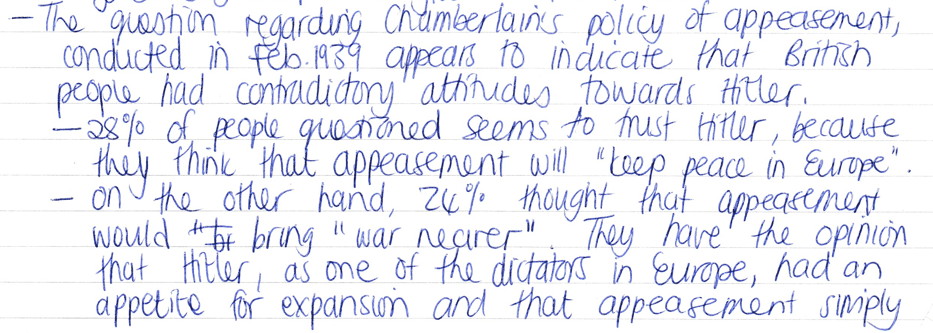 - The question regarding Chamberlain's policy of appeasement,
conducted in Feb. 1939 appears to indicate that British
people had contradictory attitudes towards Hitler.
- 28% of people questioned seems to trust Hitler, because
they think that appeasement will "keep peace in Europe".
- on the other hand, 24% thought that appeasement
would " bring "war nearer". They have the opinion
that Hitler, as one of the dictators in Europe, had an
appetite for expansion and that appeasement simply